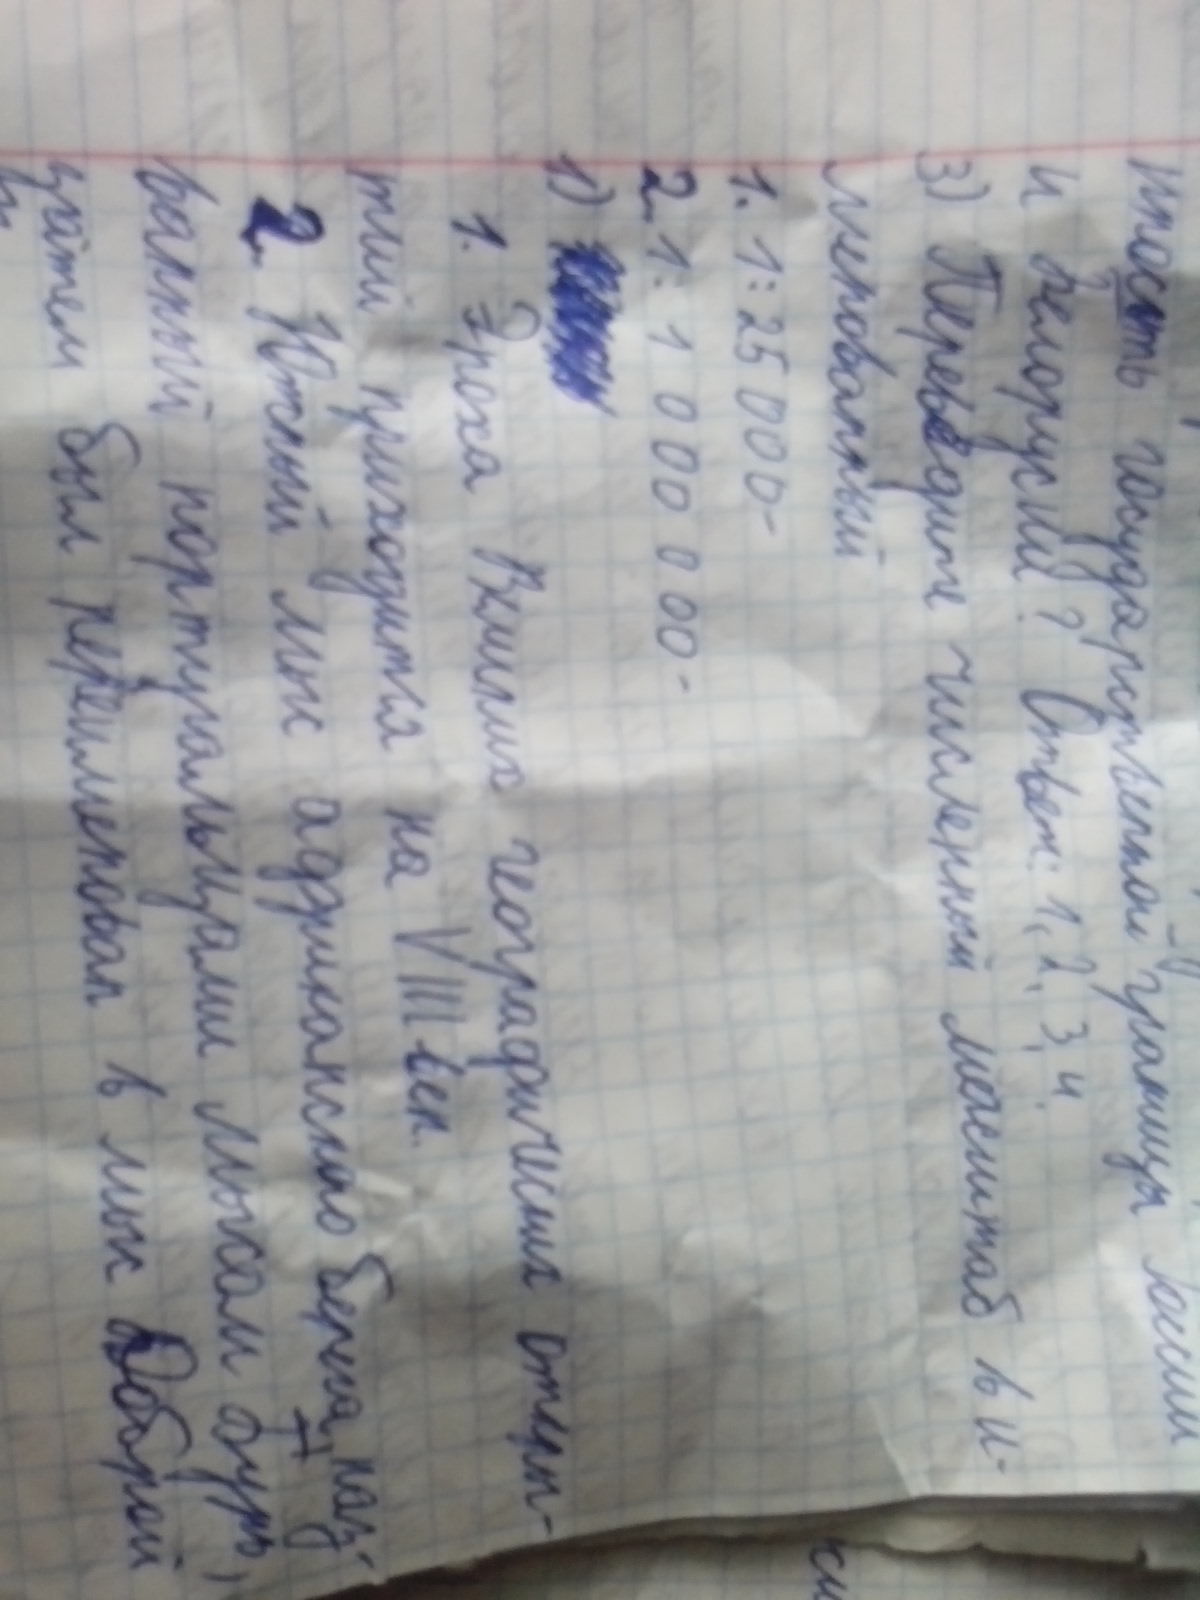 тость государственной границы
и Белорусии? Ответ: 1, 2, 3, 4.
3) Переведите численный масштаб в и-
менованный
1. 1:25 000-
2. 1:1 000 000-
1)
1. Эпоха Великих географических откры-
тий приходится на VIII век.
2 Южный мыс африканского берега, наз-
ванный португальцами мысом бурь,
затем был переименован в мыс Доброй